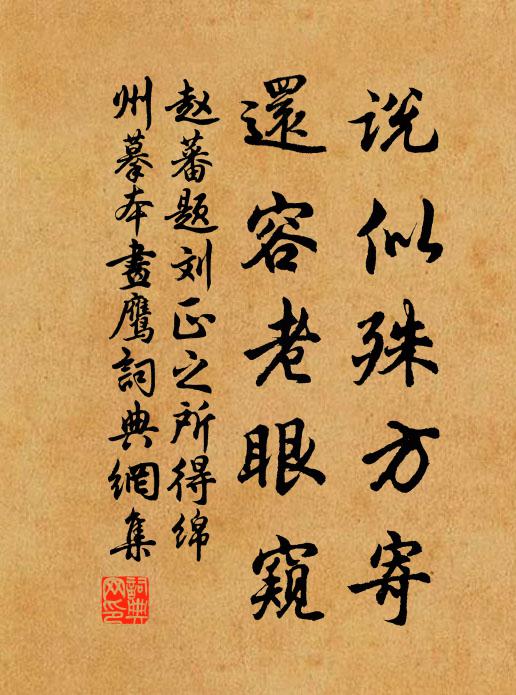 说似殊方寄
還容老眼窺
赵蕃题刘正之所得绵
州摹本畫鹰詞典網集
詞典网印